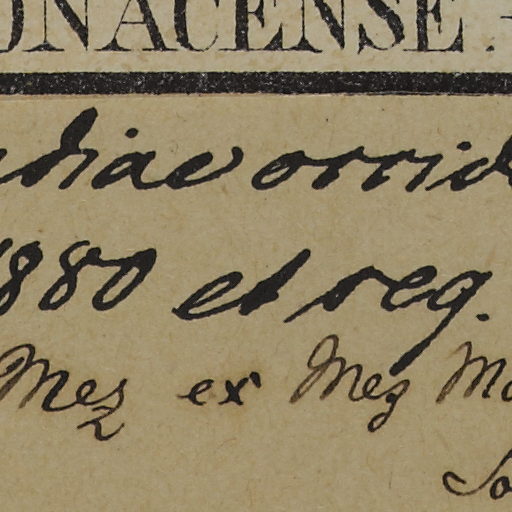 ONACENSE
diae orrid
1880 et seq.
Mez ex Mez Mo
So